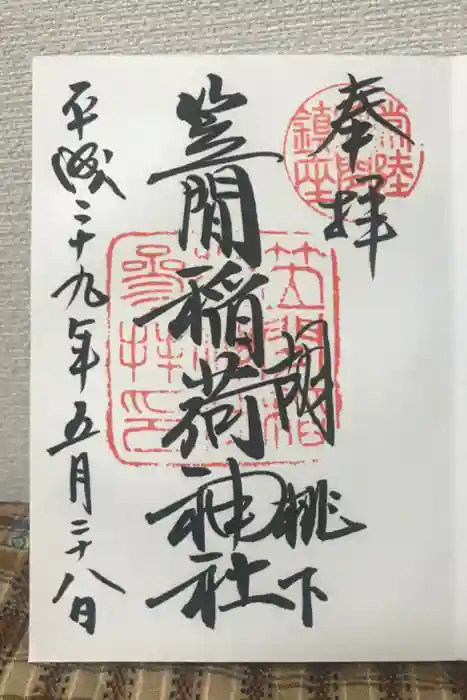 奉拝
胡桃下
笠間稲荷神社
平成二十九年五月二十八日
常陸
笠間
鎮座
笠間稲荷
神社
参拝之印